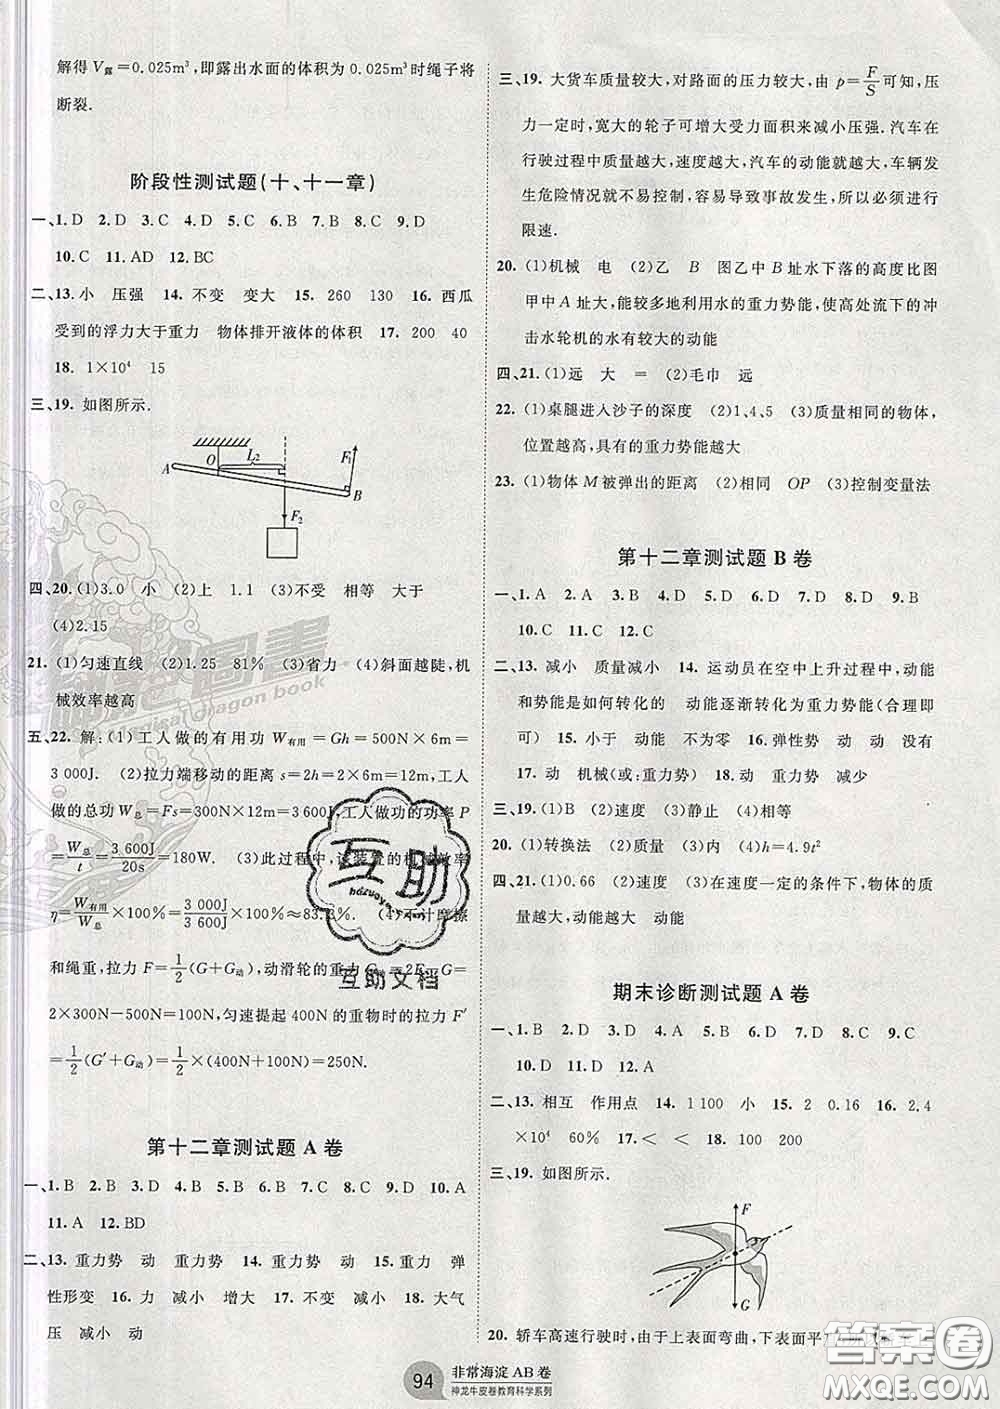 解得V露＝0.025m³，即露出水面的体积为0.025m³时绳子将
断裂.
阶段性测试题(十、十一章)
一、1. D 2. D 3. C 4. D 5. C 6. B 7. B 8. C 9. D
10. C 11. AD 12. BC
二、13. 小 压强 14. 不变 变大 15. 260 130 16. 西瓜
受到的浮力大于重力 物体排开液体的体积 17. 200 40
18. 1×10⁴ 15
三、19. 如图所示.
O L₂ F₁
A
B
F₂
四、20. (1)3.0 小 (2)上 1.1 (3)不受 相等 大于
(4)2.15
21. (1)匀速直线 (2)1.25 81% (3)省力 (4)斜面越陡，机
械效率越高
五、22. 解：(1)工人做的有用功W有用＝Gh＝500N×6m＝
3 000J. (2)拉力端移动的距离s＝2h＝2×6m＝12m，工人
做的总功W总＝Fs＝300N×12m＝3 600J，工人做功的功率P
＝W总/t＝3 600J/20s＝180W. (3)此过程中，该装置的机械效率
η＝W有用/W总×100%＝3 000J/3 600J×100%≈83.3%. (4)不计摩擦
和绳重，拉力F＝1/2(G＋G动)，动滑轮的重力G动＝2F－G＝
2×300N－500N＝100N，匀速提起400N的重物时的拉力F′
＝1/2(G′＋G动)＝1/2×(400N＋100N)＝250N.
第十二章测试题A卷
一、1. B 2. B 3. D 4. B 5. B 6. D 7. C 8. D 9. D 10. A
11. A 12. BD
二、13. 重力势 动 重力势 14. 重力势 动 15. 重力 弹
性形变 16. 力 减小 增大 17. 不变 减小 18. 大气
压 减小 动
三、19. 大货车质量较大，对路面的压力较大，由p＝F/S可知，压
力一定时，宽大的轮子可增大受力面积来减小压强. 汽车在
行驶过程中质量越大，速度越大，汽车的动能就越大，车辆发
生危险情况就不易控制，容易导致事故发生，所以必须进行
限速.
20. (1)机械 电 (2)乙 B 图乙中B址水下落的高度比图
甲中A址大，能较多地利用水的重力势能，使高处流下的冲
击水轮机的水有较大的动能
四、21. (1)远 大 ＝ (2)毛巾 远
22. (1)桌腿进入沙子的深度 (2)1、4、5 (3)质量相同的物体，
位置越高，具有的重力势能越大
23. (1)物体M被弹出的距离 (2)相同 OP (3)控制变量法
第十二章测试题B卷
一、1. A 2. B 3. D 4. D 5. D 6. D 7. D 8. D 9. B
10. C 11. C 12. C
二、13. 减小 质量减小 14. 运动员在空中上升过程中，动能
和势能是如何转化的 动能逐渐转化为重力势能(合理即
可) 15. 小于 动能 不为零 16. 弹性势 动 动 没有
17. 动 机械(或：重力势) 18. 动 重力势 减少
三、19. (1)B (2)速度 (3)静止 (4)相等
20. (1)转换法 (2)质量 (3)内 (4)h＝4.9t²
四、21. (1)0.66 (2)速度 (3)在速度一定的条件下，物体的质
量越大，动能越大 动能
期末诊断测试题A卷
一、1. B 2. D 3. D 4. A 5. B 6. D 7. D 8. C 9. C
10. D 11. D 12. A
二、13. 相互 作用点 14. 1 100 小 15. 2 0.16 16. 2.4
×10⁴ 60% 17. ＜ ＜ 18. 100 200
三、19. 如图所示.
F
G
20. 轿车高速行驶时，由于上表面弯曲，下表面平
94 非常海淀AB卷
神龙牛皮卷教育科学系列
互助
互助文档
dragon book
答案卷
MXQE.COM